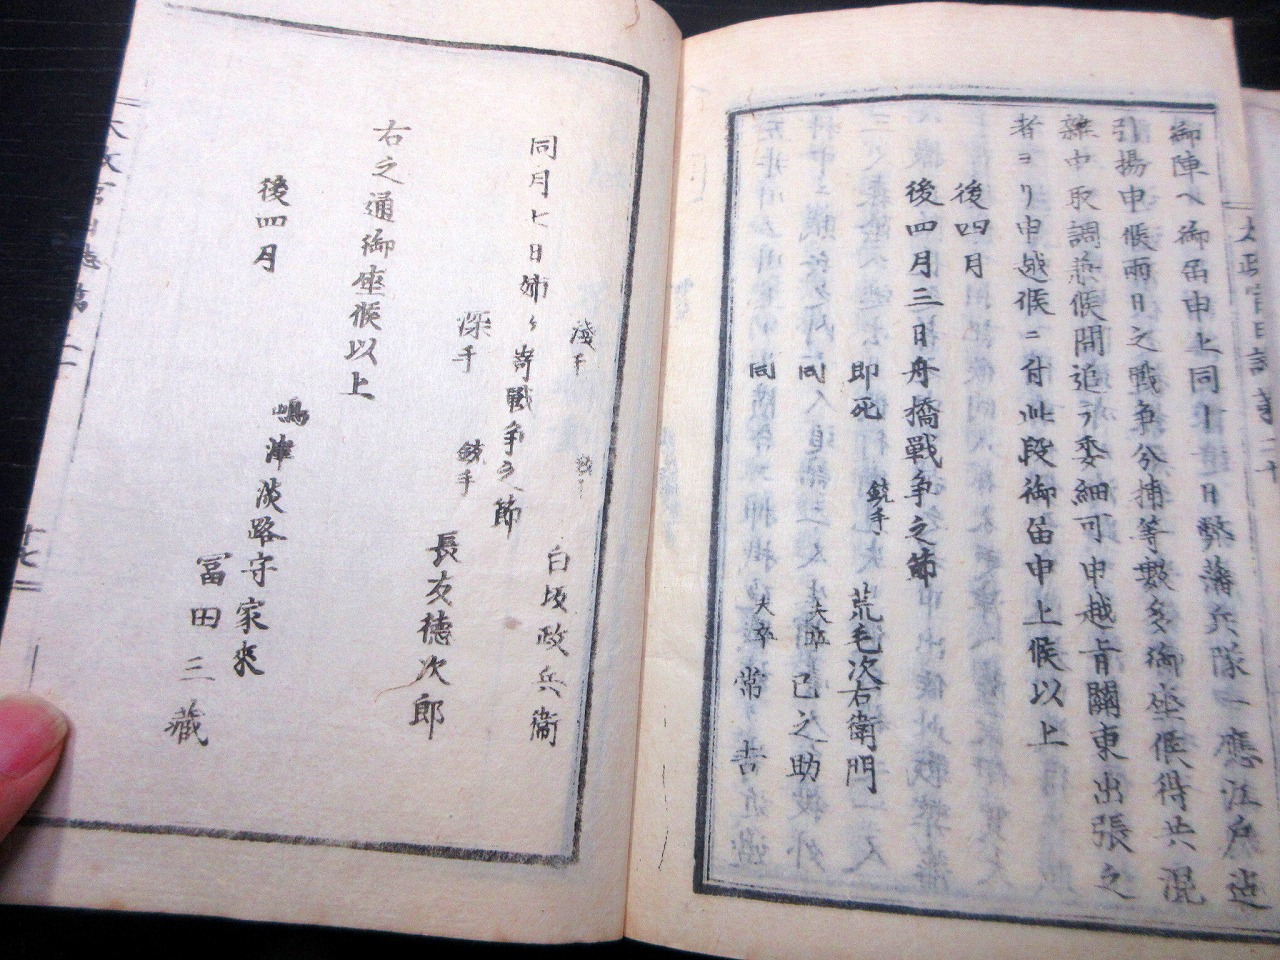 御陣ヘ御届申上同十日弊藩兵隊一應江戸迠
引揚申候両日之戰争分捕等數多御座候得共混
雜中取調兼候間追テ委細可申越旨關東出張之
者ヨリ申越候ニ付此段御届申上候以上
後四月
後四月三日舟橋戰争之節
即死 銃手 荒毛次右衛門
同 夫卒 已之助
同 夫卒 常吉
淺手 白坂政兵衞
同月七日姉ヶ嵜戰争之節
深手 銃手 長友德次郎
右之通御座候以上
後四月
嶋津淡路守家來
冨田三藏
太政官日誌
十七